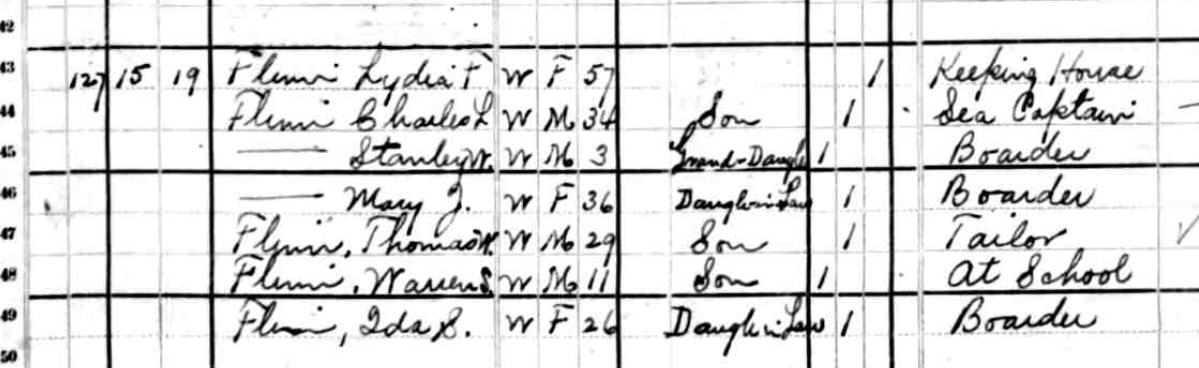 42
43 127 15 19 Flinn Lydia F W F 57 1 Keeping House
44 Flinn Charles L W M 34 Son 1 Sea Captain
45 —— Stanley W. W M 3 Grand-Daugh 1 Boarder
46 —— Mary J. W F 36 Daugh in Law 1 Boarder
47 Flynn, Thomas W. W M 29 Son 1 Tailor
48 Flinn, Warren S. W M 11 Son 1 At School
49 Flinn, Ida S. W F 26 Daugh in Law 1 Boarder
50